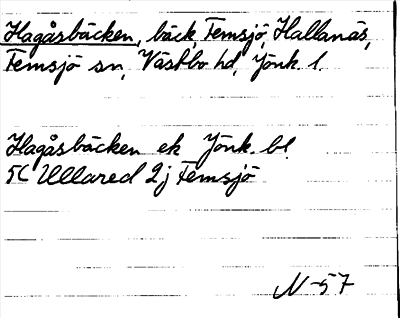 Hagåsbäcken, bäck, Femsjö, Hallanäs,
Femsjö sn, Västbo hd, Jönk. l.
Hagåsbäcken ek Jönk. bl.
5C Ullared 2j Femsjö
N-57